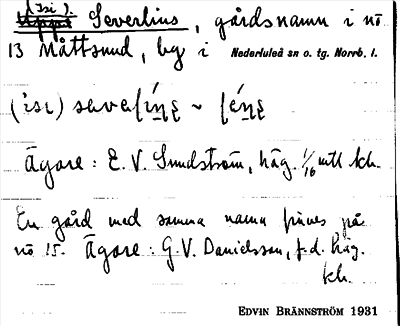 (Isi).
Uppi Severlius, gårdsnamn i nö
13 Måttsund, by i Nederluleå sn o. tg. Norrb. l.
(isi)
Ägare: E. V. Sundström, häg. 1/16 mtl kh.
En gård med samma namn finnes på
nö 15. Ägare: G. V. Danielsson, f.d. häg.
kh.
EDVIN BRÄNNSTRÖM 1931